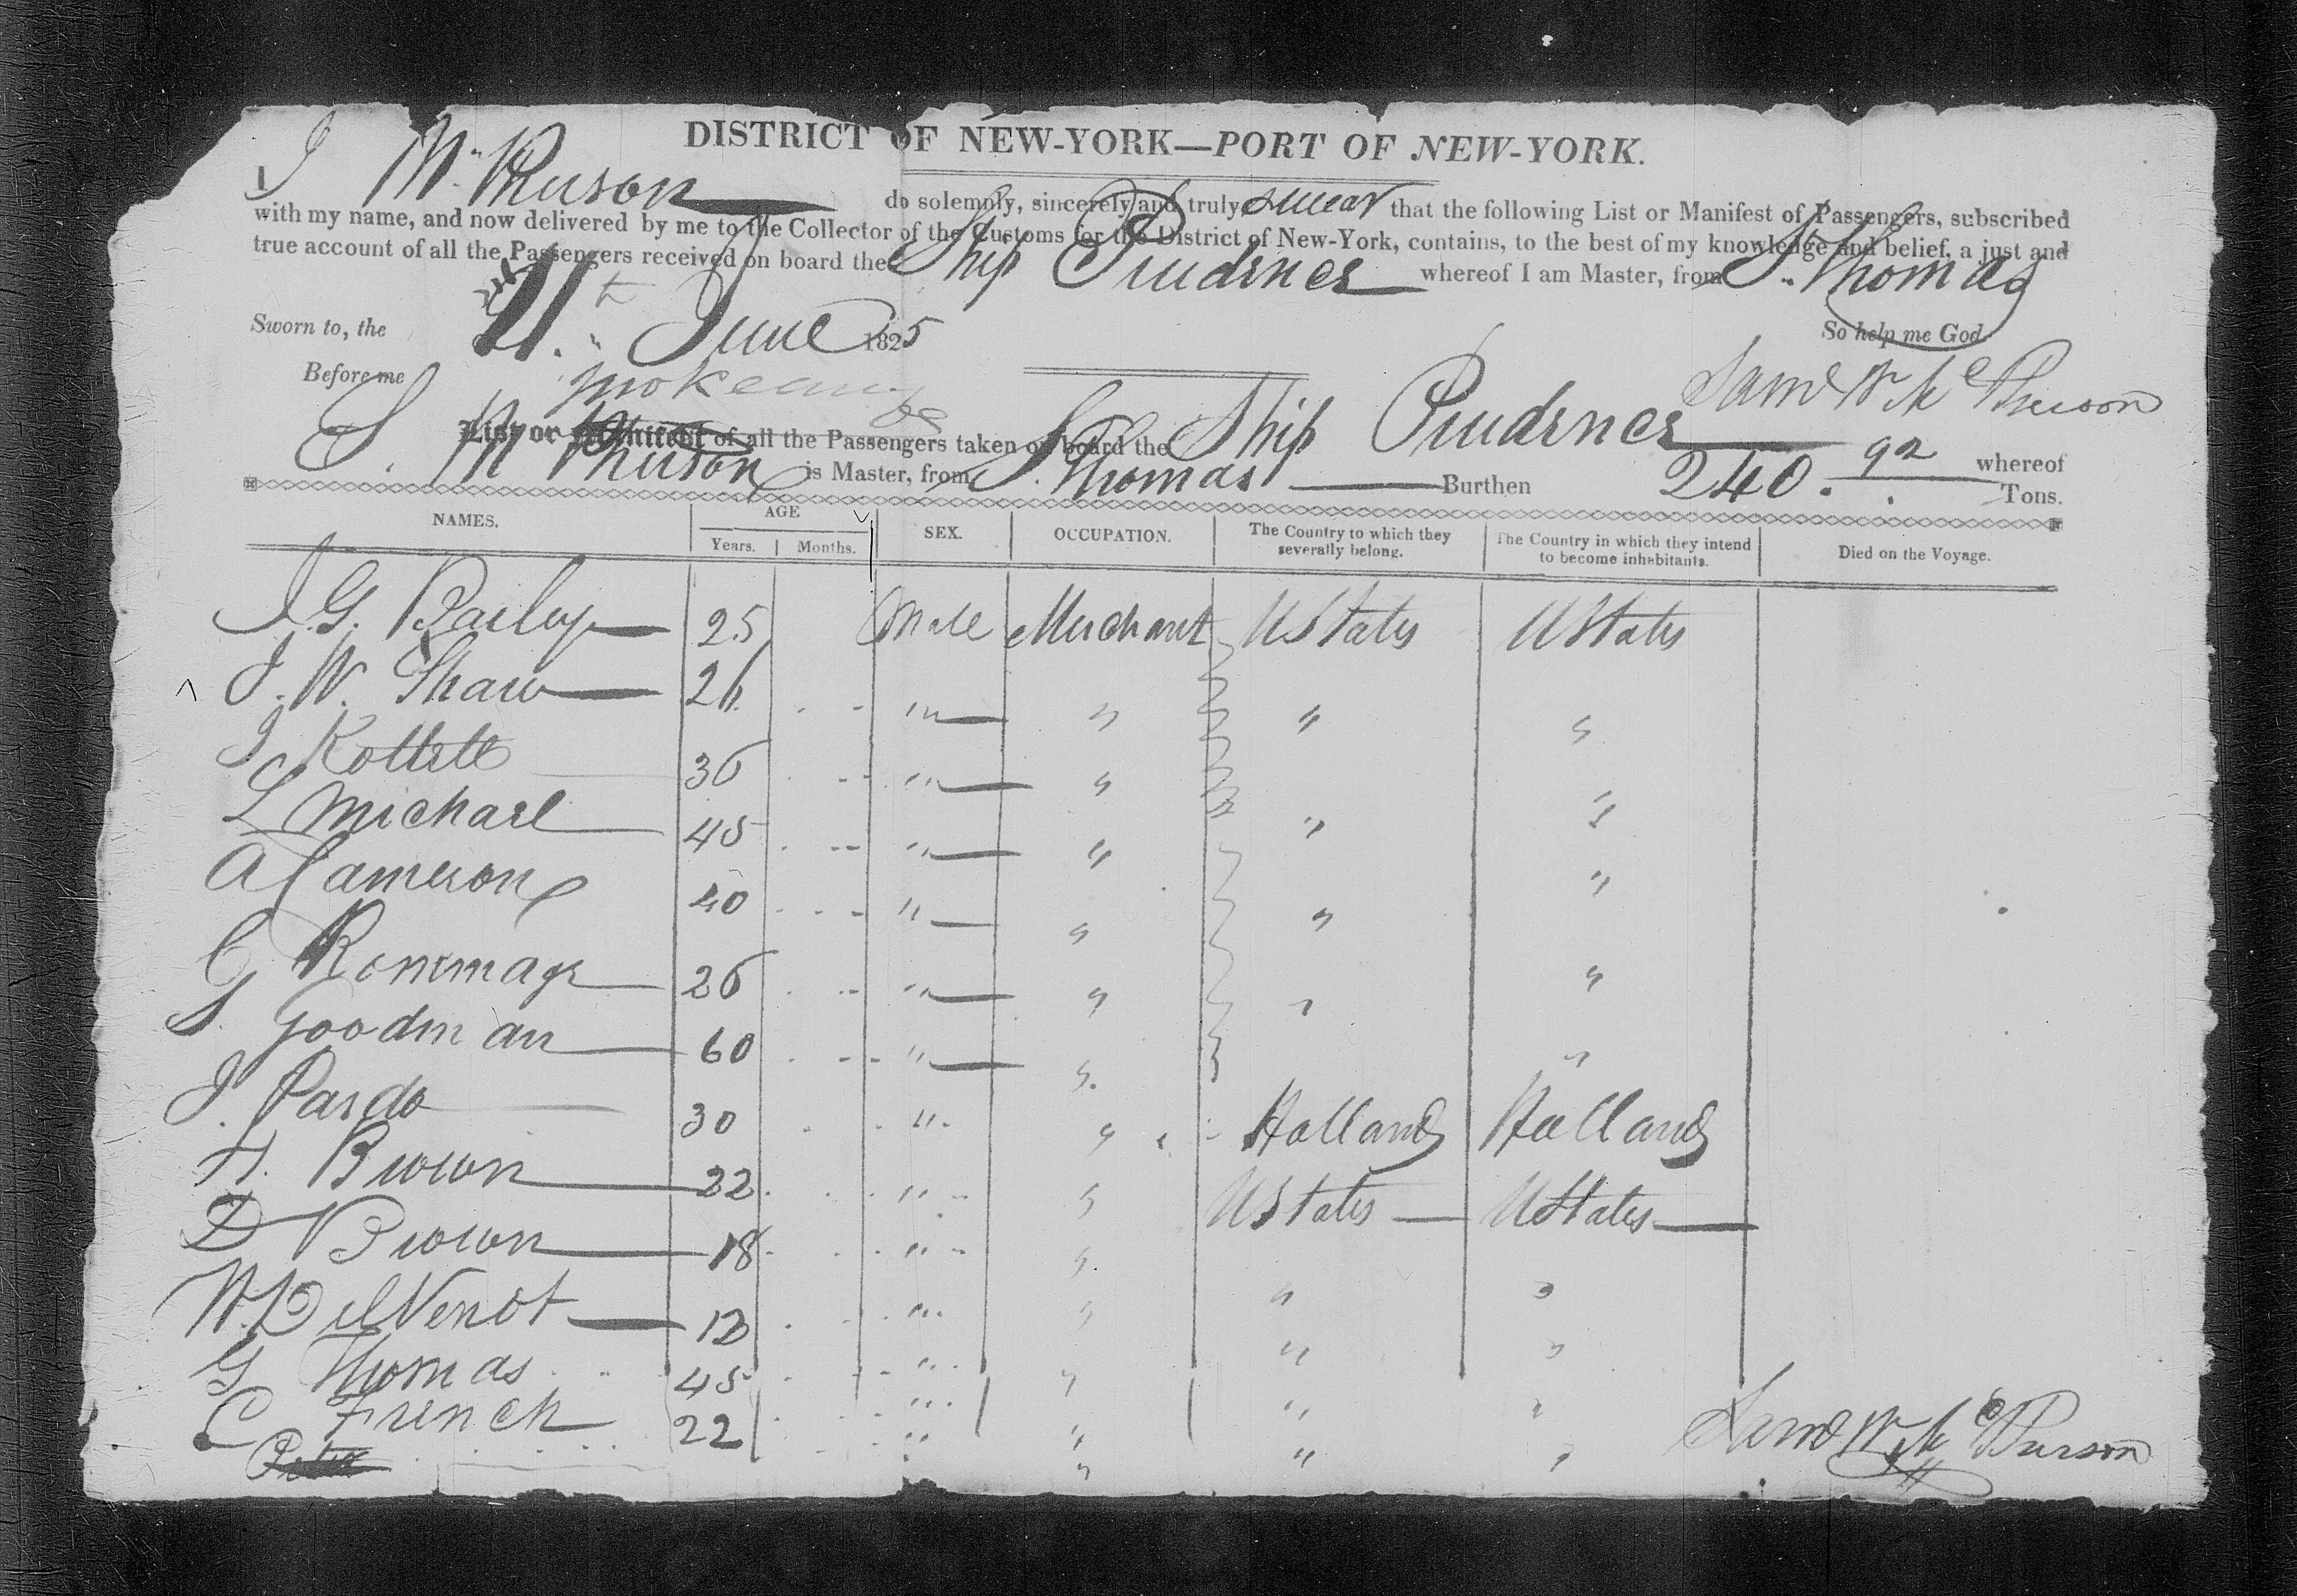 DISTRICT OF NEW-YORK—PORT OF NEW-YORK.
I McPherson do solemnly, sincerely and truly swear that the following List or Manifest of Passengers, subscribed
with my name, and now delivered by me to the Collector of the Customs for the District of New-York, contains, to the best of my knowledge and belief, a just and
true account of all the Passengers received on board the Ship Prudence whereof I am Master, from St. Thomas
Sworn to, the June 1825 So help me God.
Before me Saml W McPherson
List or Manifest of all the Passengers taken on board the Ship Prudence whereof
S. McPherson is Master, from St. Thomas Burthen 240. 92 Tons.
NAMES. AGE Years. Months. SEX. OCCUPATION. The Country to which they severally belong. The Country in which they intend to become inhabitants. Died on the Voyage.
J. G. Bailey 25 Male Merchant UStates UStates
J. W. Shaw 26 " " " "
J 36 " " " "
L Michael 45 " " " "
A Cameron 40 " " " "
G 26 " " " "
S. Goodman 60 " " "
J. Pardo 30 " " Holland Holland
A. Brown 22 " " UStates UStates
D Brown 18 " " " "
W. 12 " " " "
G Thomas 45 " " " "
C French 22 " " " "
Saml W McPherson